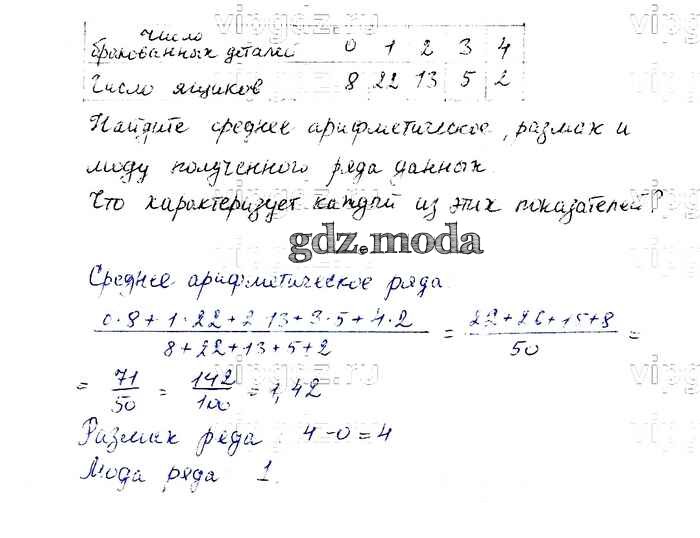 vipgdz.ru vipgdz.ru vipg
Число
бракованных деталей 0 1 2 3 4
Число ящиков 8 22 13 5 2
Найдите среднее арифметическое, размах и
моду полученного ряда данных.
Что характеризует каждый из этих показателей?
gdz.moda
Среднее арифметическое ряда
0·8+1·22+2·13+3·5+4·2 / 8+22+13+5+2 = 22+26+15+8 / 50 =
= 71/50 = 142/100 = 1,42
Размах ряда: 4-0=4
Мода ряда 1.